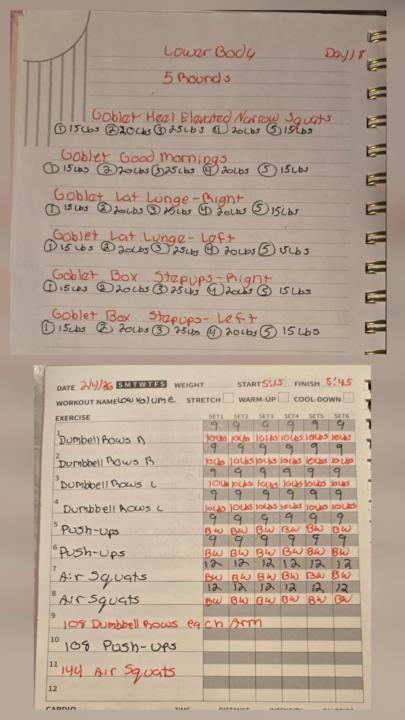 Lower Body Day 18
5 Rounds
Goblet Heel Elevated Narrow Squats
① 15Lbs ② 20Lbs ③ 25Lbs ④ 20Lbs ⑤ 15Lbs
Goblet Good mornings
① 15Lbs ② 20Lbs ③ 25Lbs ④ 20Lbs ⑤ 15Lbs
Goblet Lat Lunge-Right
① 15Lbs ② 20Lbs ③ 25Lbs ④ 20Lbs ⑤ 15Lbs
Goblet Lat Lunge-Left
① 15Lbs ② 20Lbs ③ 25Lbs ④ 20Lbs ⑤ 15Lbs
Goblet Box Stepups-Right
① 15Lbs ② 20Lbs ③ 25Lbs ④ 20Lbs ⑤ 15Lbs
Goblet Box Stepups-Left
① 15Lbs ② 20Lbs ③ 25Lbs ④ 20Lbs ⑤ 15Lbs
DATE 2/4/26 S M T W T F S WEIGHT START 5:15 FINISH 5:45
WORKOUT NAME Low Volume STRETCH WARM-UP COOL-DOWN
EXERCISE SET1 SET2 SET3 SET4 SET5 SET6
9 9 9 9 9 9
1 Dumbbell Rows R 10Lbs 10Lbs 10Lbs 10Lbs 10Lbs 10Lbs
9 9 9 9 9 9
2 Dumbbell Rows R 10Lbs 10Lbs 10Lbs 10Lbs 10Lbs 10Lbs
9 9 9 9 9 9
3 Dumbbell Rows L 10Lbs 10Lbs 10Lbs 10Lbs 10Lbs 10Lbs
9 9 9 9 9 9
4 Dumbbell Rows L 10Lbs 10Lbs 10Lbs 10Lbs 10Lbs 10Lbs
9 9 9 9 9 9
5 Push-Ups BW BW BW BW BW BW
9 9 9 9 9 9
6 Push-Ups BW BW BW BW BW BW
12 12 12 12 12 12
7 Air Squats BW BW BW BW BW BW
12 12 12 12 12 12
8 Air Squats BW BW BW BW BW BW
9 108 Dumbbell Rows each Arm
10 108 Push-Ups
11 144 Air Squats
12
CARDIO TIME DISTANCE INTENSITY CALORIES